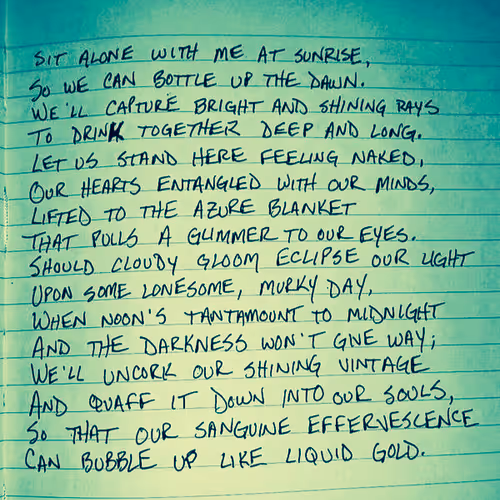 SIT ALONE WITH ME AT SUNRISE,
SO WE CAN BOTTLE UP THE DAWN.
WE'LL CAPTURE BRIGHT AND SHINING RAYS
TO DRINK TOGETHER DEEP AND LONG.
LET US STAND HERE FEELING NAKED,
OUR HEARTS ENTANGLED WITH OUR MINDS,
LIFTED TO THE AZURE BLANKET
THAT PULLS A GLIMMER TO OUR EYES.
SHOULD CLOUDY GLOOM ECLIPSE OUR LIGHT
UPON SOME LONESOME, MURKY DAY,
WHEN NOON'S TANTAMOUNT TO MIDNIGHT
AND THE DARKNESS WON'T GIVE WAY;
WE'LL UNCORK OUR SHINING VINTAGE
AND QUAFF IT DOWN INTO OUR SOULS,
SO THAT OUR SANGUINE EFFERVESCENCE
CAN BUBBLE UP LIKE LIQUID GOLD.